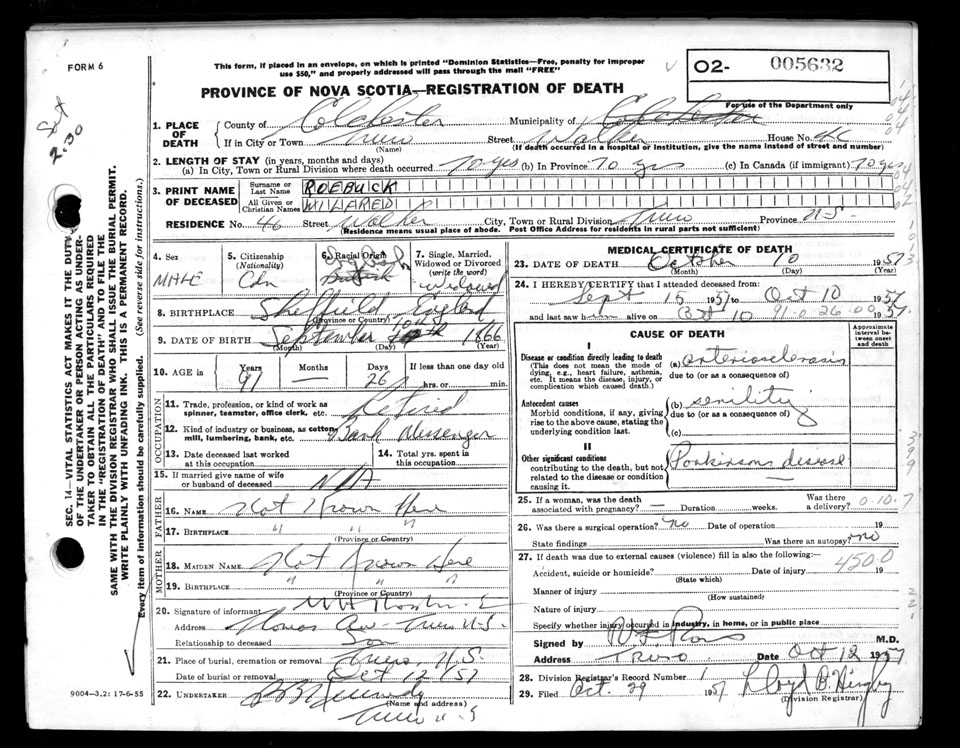 FORM 6
This form, if placed in an envelope, on which is printed "Dominion Statistics—Free, penalty for improper
use $50," and properly addressed will pass through the mail "FREE"
O2- 005632
PROVINCE OF NOVA SCOTIA—REGISTRATION OF DEATH
For use of the Department only
2.30
1. PLACE OF DEATH
County of Colchester Municipality of Colchester
If in City or Town Truro Street Walker House No. 46
(Name) (If death occurred in a hospital or institution, give the name instead of street and number)
2. LENGTH OF STAY (in years, months and days)
(a) In City, Town or Rural Division where death occurred 70 yrs (b) In Province 70 yrs (c) In Canada (if immigrant) 70 yrs
3. PRINT NAME OF DECEASED
Surname or Last Name ROEBUCK
All Given or Christian Names WILLARED
RESIDENCE No. 46 Street Walker City, Town or Rural Division Truro Province N.S.
(Residence means usual place of abode. Post Office Address for residents in rural parts not sufficient)
4. Sex MALE
5. Citizenship (Nationality) Cdn
6. Racial Origin
7. Single, Married, Widowed or Divorced (write the word) Widowed
8. BIRTHPLACE Sheffield England
(Province or Country)
9. DATE OF BIRTH September 1866
(Month) (Day) (Year)
10. AGE in Years 91 Months — Days 26 If less than one day old
hrs. or min.
OCCUPATION
11. Trade, profession, or kind of work as
spinner, teamster, office clerk, etc. Retired
12. Kind of industry or business, as cotton
mill, lumbering, bank, etc. Bank Messenger
13. Date deceased last worked
at this occupation
14. Total yrs. spent in
this occupation
15. If married give name of wife
or husband of deceased N/A
FATHER
16. NAME Not Known Here
17. BIRTHPLACE " " "
(Province or Country)
MOTHER
18. MAIDEN NAME Not Known Here
19. BIRTHPLACE " " "
(Province or Country)
20. Signature of informant
Address Truro N.S.
Relationship to deceased Son
21. Place of burial, cremation or removal Truro N.S.
Date of burial or removal Oct 12/57
22. UNDERTAKER
(Name and address)
Truro N.S
MEDICAL CERTIFICATE OF DEATH
23. DATE OF DEATH October 10 1957
(Month) (Day) (Year)
24. I HEREBY CERTIFY that I attended deceased from:
Sept 15 1957 to Oct 10 1957
and last saw him alive on Oct 10 91.0.26.00 1957.
CAUSE OF DEATH
Approximate interval between onset and death
I
Disease or condition directly leading to death
(This does not mean the mode of
dying, e.g., heart failure, asthenia,
etc. It means the disease, injury, or
complication which caused death.)
(a) arteriosclerosis
due to (or as a consequence of)
Antecedent causes
Morbid conditions, if any, giving
rise to the above cause, stating the
underlying condition last.
(b) senility
due to (or as a consequence of)
(c)
II
Other significant conditions
contributing to the death, but not
related to the disease or condition
causing it.
Parkinsons disease
25. If a woman, was the death
associated with pregnancy? — Duration weeks. Was there
a delivery? 0.10.7
26. Was there a surgical operation? no Date of operation 19
State findings Was there an autopsy? no
27. If death was due to external causes (violence) fill in also the following:—
Accident, suicide or homicide? Date of injury 19
450.0
(State which)
Manner of injury
(How sustained)
Nature of injury
Specify whether injury occurred in industry, in home, or in public place
Signed by M.D.
Address Truro Date Oct 12 1957
28. Division Registrar's Record Number
29. Filed Oct. 29 1957 Lloyd
(Division Registrar)
SEC. 14—VITAL STATISTICS ACT MAKES IT THE DUTY
OF THE UNDERTAKER OR PERSON ACTING AS UNDER-
TAKER TO OBTAIN ALL THE PARTICULARS REQUIRED
IN THE "REGISTRATION OF DEATH" AND TO FILE THE
SAME WITH THE DIVISION REGISTRAR WHO SHALL ISSUE THE BURIAL PERMIT.
WRITE PLAINLY WITH UNFADING INK. THIS IS A PERMANENT RECORD.
Every item of information should be carefully supplied. (See reverse side for instructions.)
9004—3.2: 17-6-55